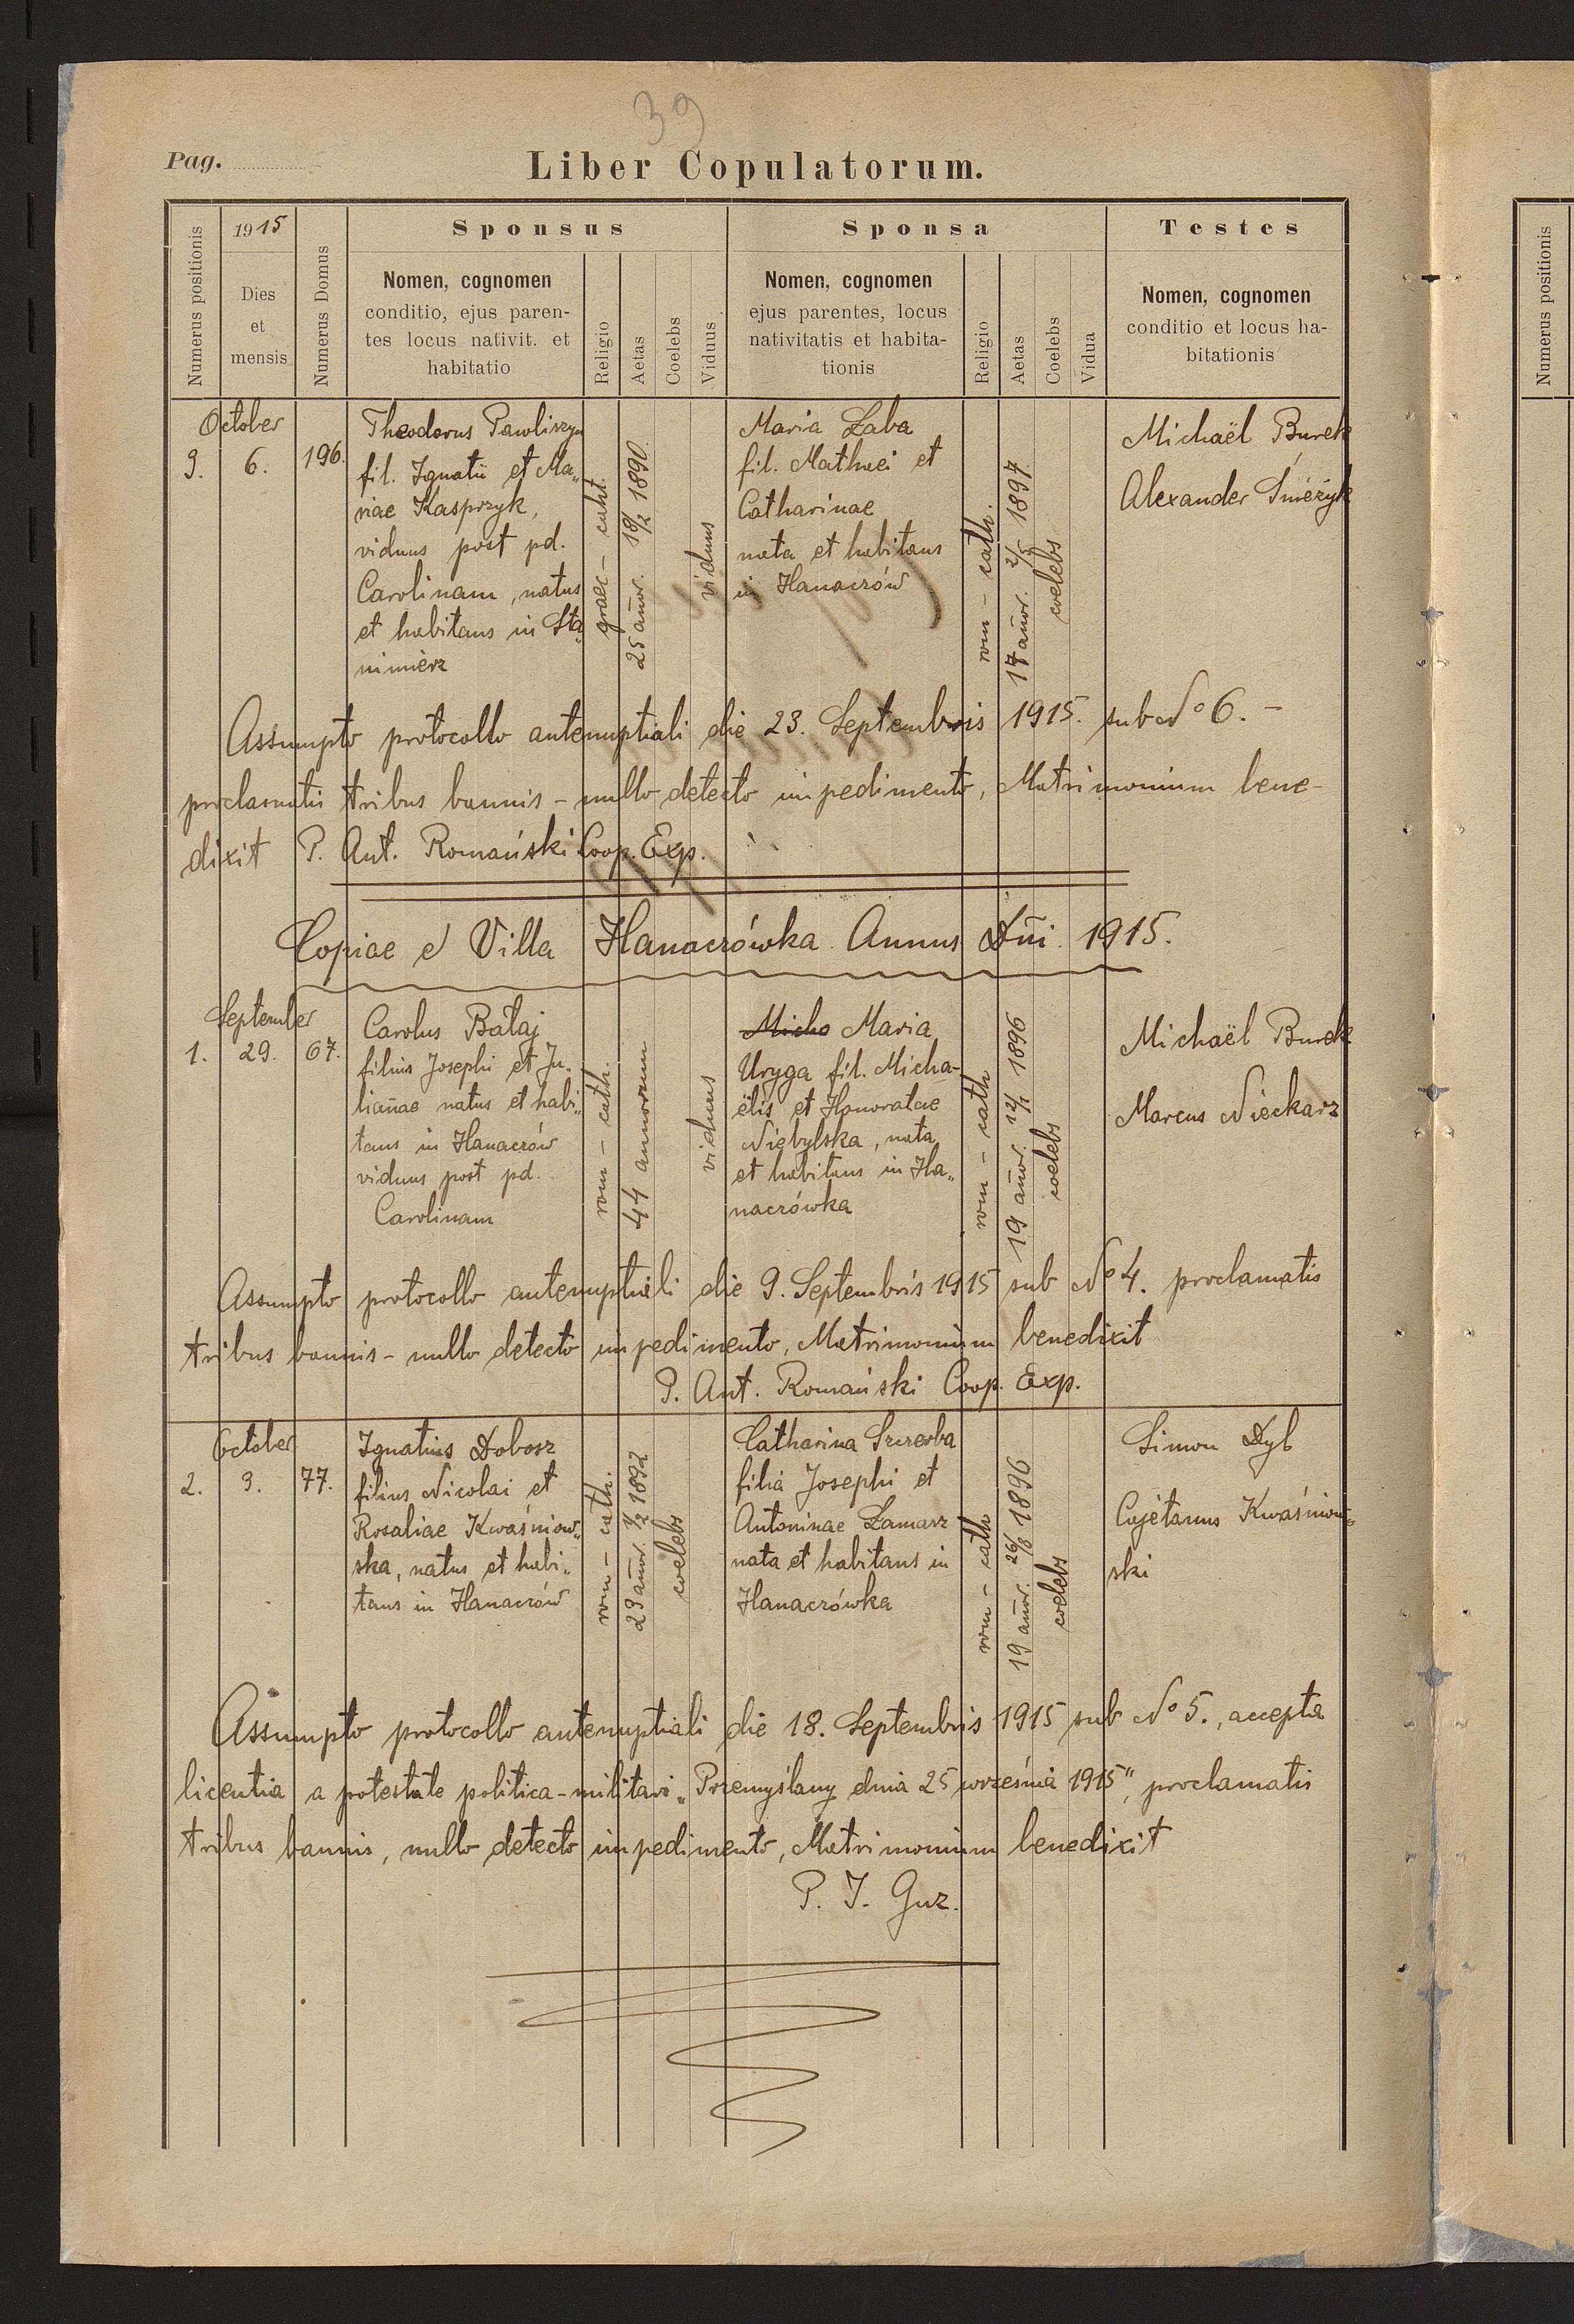 39
Pag.
Liber Copulatorum.
Numerus positionis
1915
Dies
et
mensis
Numerus Domus
Sponsus
Nomen, cognomen
conditio, ejus paren-
tes locus nativit. et
habitatio
Religio
Aetas
Coelebs
Viduus
Sponsa
Nomen, cognomen
ejus parentes, locus
nativitatis et habita-
tionis
Religio
Aetas
Coelebs
Vidua
Testes
Nomen, cognomen
conditio et locus ha-
bitationis
Numerus positionis
October
9. 6. 196.
Theodorus Pawliszyn
fil. Ignatii et Ma„
riae Kasprzyk,
viduus post pd.
Carolinam, natus
et habitans in Sta„
nimierz
graec - cath.
25 añor. 18/2 1890.
viduus
Maria Łaba
fil. Mathaei et
Catharinae
nata et habitans
in Hanaczów
rom - cath.
17 añor. 2/5 1897.
coelebs
Michaël Burek
Alexander Śnieżyk
Assumpto protocollo antenuptiali die 23. Septembris 1915. sub No 6. -
proclamatis tribus bannis - nullo detecto impedimento, Matrimonium bene-
dixit P. Ant. Romański Coop. Exp.
Copiae e Villa Hanaczówka Annus Dñi. 1915.
September
1. 29. 67.
Carolus Bałaj
filius Josephi et Ju„
liañae natus et habi„
tans in Hanaczów
viduus post pd.
Carolinam
rom - cath.
44 annorum
viduus
Micha Maria
Uryga fil. Micha-
ëlis et Honoratae
Niebylska, nata
et habitans in Ha„
naczówka
rom - cath
19 añor. 12/1 1896
coelebs
Michaël Burek
Marcus Nieckarz
Assumpto protocollo antenuptiali die 9. Septembris 1915 sub No 4. proclamatis
tribus bannis - nullo detecto impedimento, Matrimonium benedixit
P. Ant. Romański Coop. Exp.
October
2. 3. 77.
Ignatius Dobosz
filius Nicolai et
Rosaliae Kwaśniow„
ska, natus et habi„
tans in Hanaczów
rom - cath.
23 añor. 1/2 1892
coelebs
Catharina Szczerba
filia Josephi et
Antoninae Łamasz
nata et habitans in
Hanaczówka
rom - cath
19 añor. 26/8 1896
coelebs
Simon Dyl
Cajetanus Kwaśniow„
ski
Assumpto protocollo antenuptiali die 18. Septembris 1915 sub No 5., accepta
licentia a potestate politica - militari „Przemyślany dnia 25 września 1915", proclamatis
tribus bannis, nullo detecto impedimento, Matrimonium benedixit
P. J. Guz.